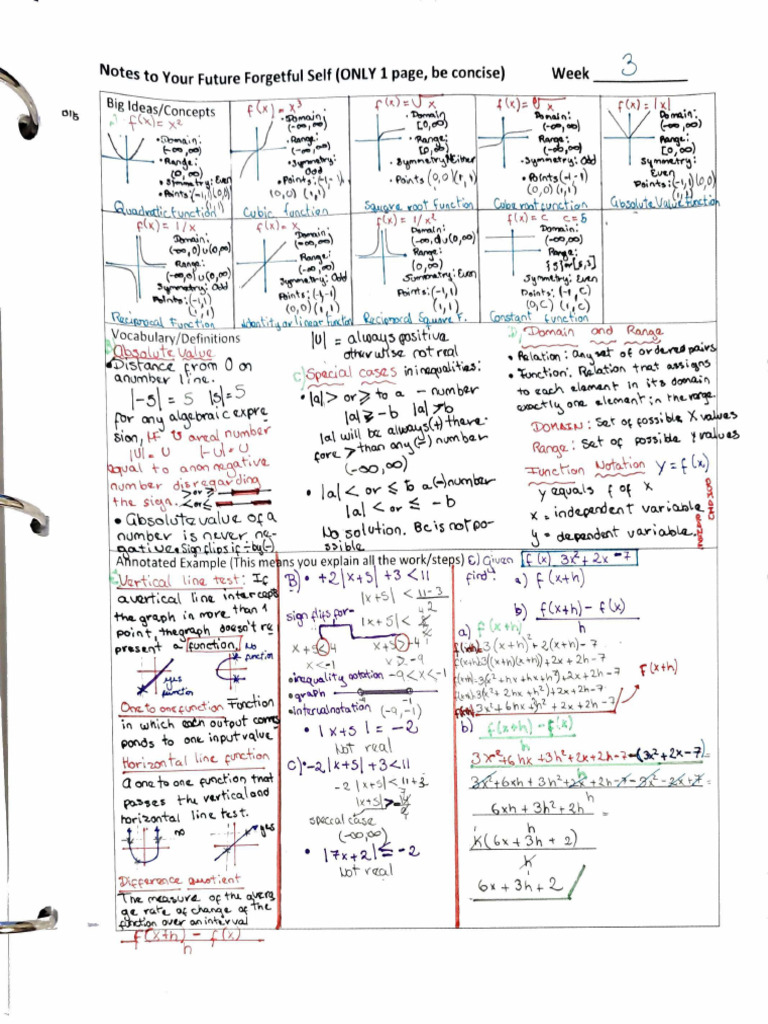 Notes to Your Future Forgetful Self (ONLY 1 page, be concise) Week 3
Big Ideas/Concepts
f(x) = x²
• Domain:
(-∞,∞)
• Range:
[0,∞)
• Symmetry: Even
• Points: (-1,1)(0,0)
Quadratic function
f(x) = x³
Domain:
(-∞,∞)
• Range:
(-∞,∞)
• Symmetry:
Odd
• Points: (-1,-1)
(0,0) (1,1)
Cubic function
f(x) = √x
• Domain
[0,∞)
• Range:
[0,∞)
• Symmetry: Neither
• Points (0,0)(1,1)
Square root function
Domain:
(-∞,∞)
• Range:
(-∞,∞)
• Symmetry: Odd
• Points (-1,-1)
(0,0) (1,1)
Cube root function
f(x) = |x|
Domain:
(-∞,∞)
Range:
[0,∞)
Symmetry:
Even
Points: (-1,1)(0,0)
Absolute Value function
f(x) = 1/x
Domain:
(-∞,0)∪(0,∞)
Range:
(-∞,0)∪(0,∞)
Symmetry: Odd
Points: (-1,-1)
(1,1)
Reciprocal Function
f(x) = x
Domain:
(-∞,∞)
Range:
(-∞,∞)
Symmetry: Odd
Points: (-1,-1)
(0,0) (1,1)
Identity or linear function
f(x) = 1/x²
Domain:
(0,∞)
Range:
(0,∞)
Symmetry: Even
Points: (-1,1)
(1,1)
Reciprocal Square F.
f(x) = c c=5
Domain:
(-∞,∞)
Range:
Symmetry: Even
Points: (-1,C)
(0,C) (1,C)
Constant function
Vocabulary/Definitions
Absolute Value
• Distance from 0 on
a number line.
|-5| = 5 |5| = 5
for any algebraic expre
sion, if U a real number
|U| = U |-U| = U
equal to a non negative
number disregarding
the sign.
• Absolute value of a
number is never ne-
gative. Sign flips if ÷ by (-)
|U| = always positive
otherwise not real
c) Special cases in inequalities:
• |a| > or ≥ to a - number
|a| ≥ -b |a| > b
|a| will be always (+) there-
fore > than any (-) number
(-∞,∞)
• |a| < or ≤ to a (-) number
|a| < or ≤ - b
No solution. Bc is not po-
ssible
D) Domain and Range
• Relation: Any set of ordered pairs
• Function: Relation that assigns
to each element in its domain
exactly one element in the range
DOMAIN: Set of possible X values
Range: Set of possible y values
Function Notation y = f(x)
y equals f of x
x = independent variable
y = dependent variable.
Annotated Example (This means you explain all the work/steps)
Vertical line test: If
a vertical line intercepts
the graph in more than 1
point, the graph doesn't re
present a function.
yes function
No function
One to one function Function
in which each output corres
ponds to one input value
Horizontal line function
A one to one function that
passes the vertical and
horizontal line test.
no yes
Difference quotient
The measure of the avera
ge rate of change of the
function over an interval
f(x+h) - f(x)
h
B) • +2|x+5| +3 < 11
|x+5| < 11-3
sign flips for-
x+5 < 4 x+5 > -4
x < -1 x > -9
• inequality notation -9 < x < -1
• graph
• Interval notation (-9,-1)
• |x+5| = -2
Not real
C) • -2|x+5| +3 < 11
-2|x+5| < 11+3
speccal case
(-∞,∞)
• |7x+2| ≤ -2
Not real
E) Given f(x) 3x²+2x-7
find:
a) f(x+h)
b) f(x+h) - f(x)
h
a) f(x+h)
3(x+h)²+2(x+h)-7
3(x+h)(x+h)+2x+2h-7
3(x²+hx+hx+h²)+2x+2h-7
3(x²+2hx+h²)+2x+2h-7
3x²+6hx+3h²+2x+2h-7
F(x+h)
b) f(x+h) - f(x)
h
3x²+6hx+3h²+2x+2h-7-(3x²+2x-7) =
h
3x²+6xh+3h²+2x+2h-7-3x²-2x+7 =
h
6xh+3h²+2h =
h
h(6x+3h+2)
h
6x+3h+2